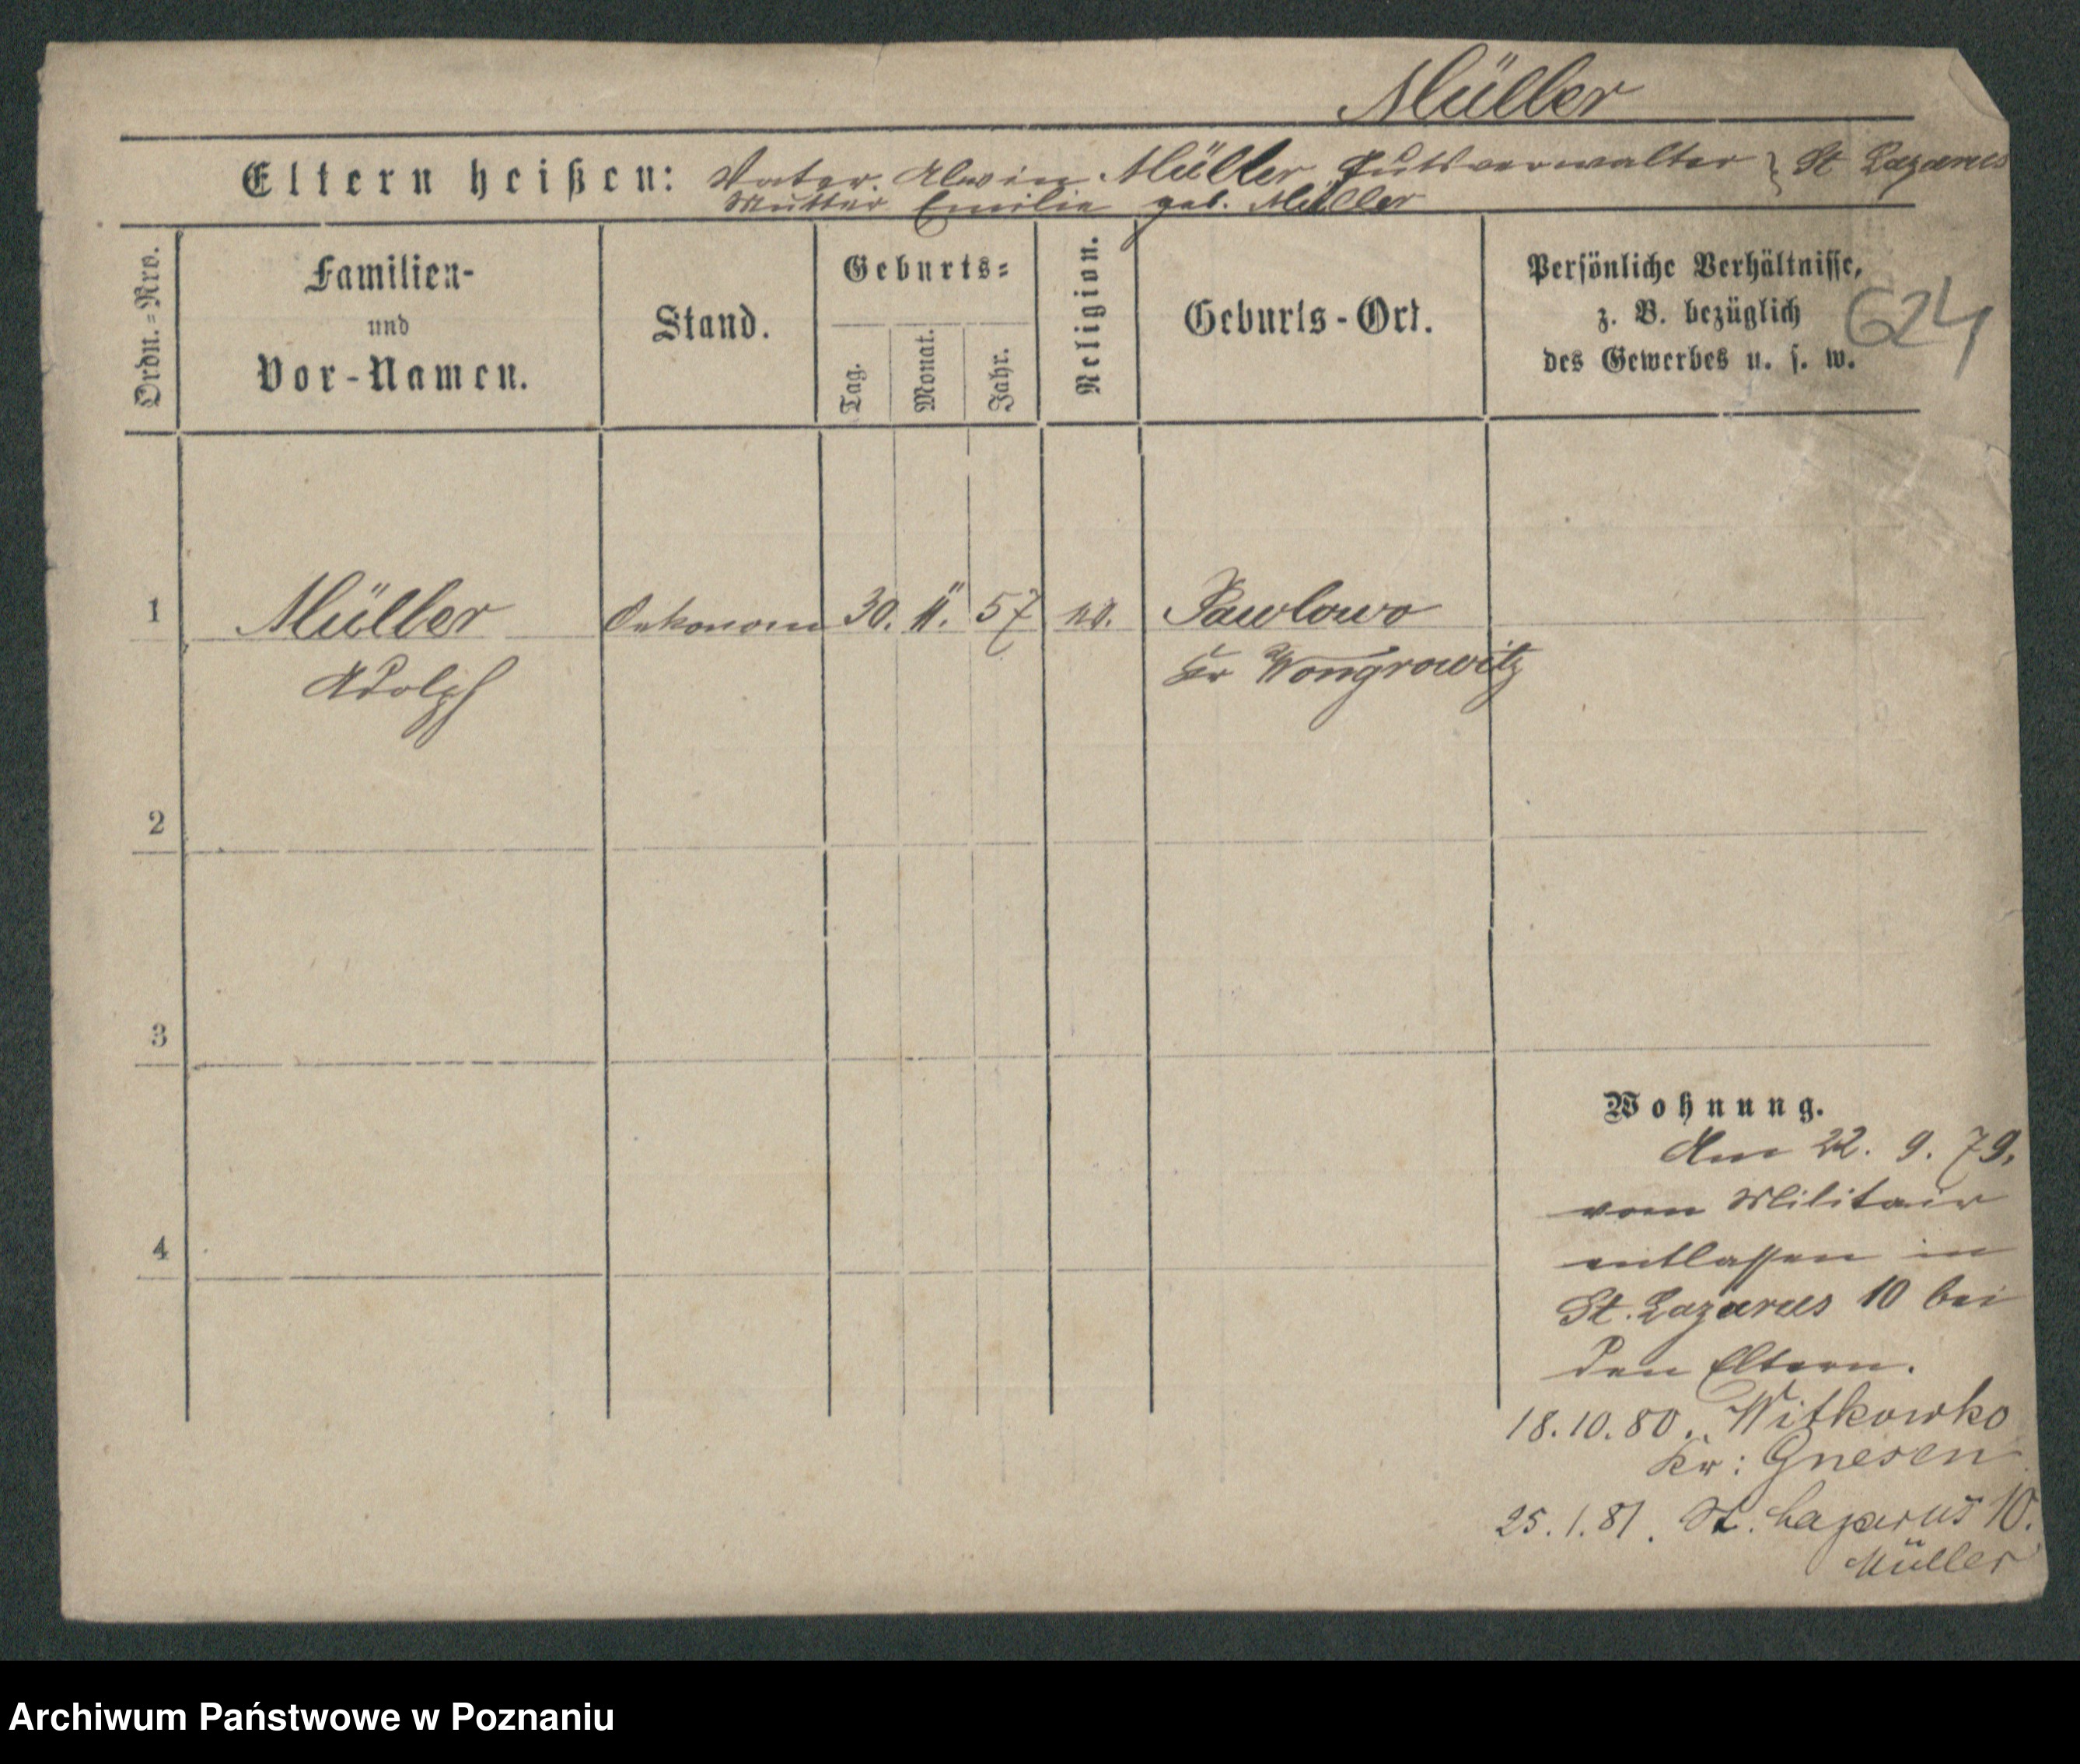 Müller
Eltern heißen: Vater. Alwin Müller Gutsverwalter } St Lazarus
Mutter Emilie geb. Müller
Ordn.=Nro.
Familien-
und
Vor-Namen.
Stand.
Geburts=
Tag.
Monat.
Jahr.
Religion.
Geburts-Ort.
Persönliche Verhältnisse,
z. B. bezüglich
des Gewerbes u. s. w.
624
1 Müller Oekonom 30. 11. 57 ev. Pawlowo
Adolph Kr Wongrowitz
2
3
4
Wohnung.
Am 22. 9. 79.
vom Militair
entlassen in
St. Lazarus 10 bei
den Eltern.
18.10.80. Witkowko
Kr: Gnesen
25.1.81. St. Lazarus 10.
Müller
Archiwum Państwowe w Poznaniu